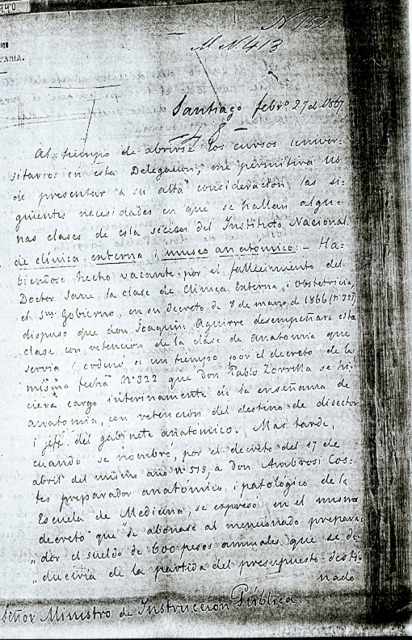 940
Santiago febro 27 de 1867
Al tiempo de abrirse los cursos univer-
sitarios en esta Delegacion, me permitirá U.
presentar a su alta consideracion, las si-
guientes necesidades en que se hallan algu-
nas clases de esta seccion del Instituto Nacional.
de clínica esterna i museo anatómico: – Ha-
biéndose hecho vacante por el fallecimiento del
Doctor la clase de Clínica Esterna i Obstetricia
el Spmo Gobierno, en su decreto de 8 de marzo de 1866 (No 321)
dispuso que don Joaquin Aguirre desempeñara esta
clase, con retencion de la clase de anatomía que
servia i ordenó a un tiempo por el decreto de la
misma fecha No 322 que Don Pablo Zorrilla se hi-
ciera cargo interinamente de la enseñanza de
anatomía, con retencion del destino de disector
i jefe del gabinete anatómico. Mas tarde,
cuando se nombró, por el decreto del 17 de
abril del mismo año No 513, a Don Ambrosi Cos-
tes preparador anatómico i patolójico de la
Escuela de Medicina, se espresó en el mismo
decreto "que se abonase al mencionado prepara-
"dor el sueldo de 600 pesos annuales que se de-
"duciria de la partida del presupuesto desti-
nado
Señor Ministro de Instruccion Pública